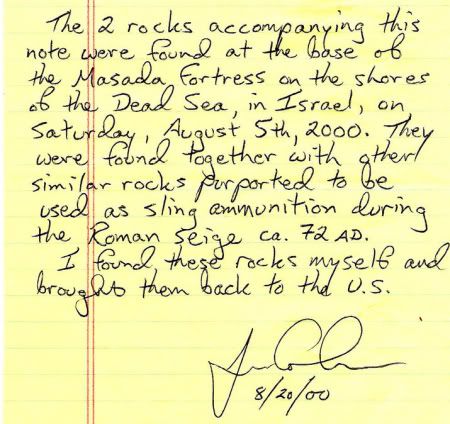 The 2 rocks accompanying this
note were found at the base of
the Masada Fortress on the shores
of the Dead Sea, in Israel, on
Saturday, August 5th, 2000. They
were found together with other
similar rocks purported to be
used as sling ammunition during
the Roman seige ca. 72 AD.
I found these rocks myself and
brought them back to the U.S.
8/20/00